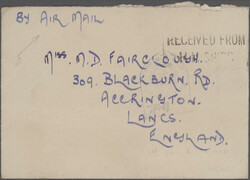 BY AIR MAIL
RECEIVED FROM
MISS. M.D. FAIRCLOUGH.
309. BLACKBURN. RD.
ACCRINGTON.
LANCS.
ENGLAND.